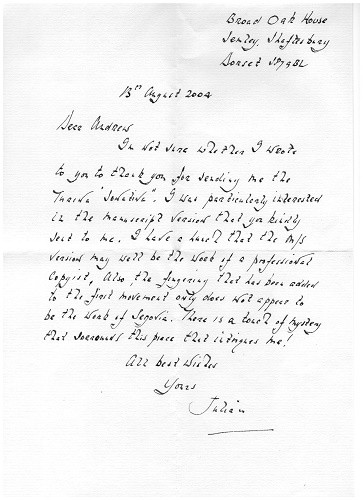 Broad Oak House
Semley, Shaftesbury
Dorset SP7 9BL
13th August 2004
Dear Andrew
I'm not sure whether I wrote
to you to thank you for sending me the
Turina 'Sonatina'. I was particularly interested
in the manuscript version that you kindly
sent to me. I have a hunch that the M/S
version may well be the work of a professional
Copyist, Also, the fingering that has been added
to the first movement only does not appear to
be the work of Segovia. There is a touch of mystery
that sorrounds this piece that intrigues me!
All best wishes
Yours
Julian